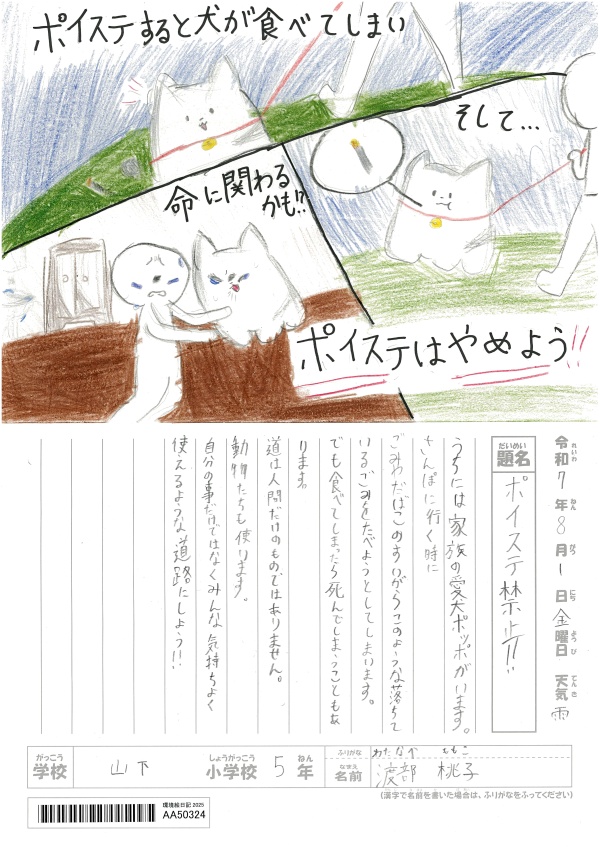 ポイステすると犬が食べてしまい
そして…
命に関わる
かも!?
ポイステはやめよう!!
令和7年8月1日金曜日 天気 雨
れいわ ねん がつ にち ようび てんき
だいめい
題名
ポイステ禁止!!
うちには家族の愛犬ポッポがいます。
さんぽに行く時に
ごみやたばこのすいがらこのような落ちて
いるごみをたべようとしてしまいます。
でも食べてしまったら死んでしまうこともあ
ります。
道は人間だけのものではありません。
動物たちも使います。
自分の事だけではなくみんな気持ちよく
使えるような道路にしよう!!
がっこう しょうがっこう ねん
学校 山下 小学校 5年
ふりがな わたなべ ももこ
なまえ
名前 渡部 桃子
(漢字で名前を書いた場合は、ふりがなをふってください)
環境絵日記 2025
AA50324